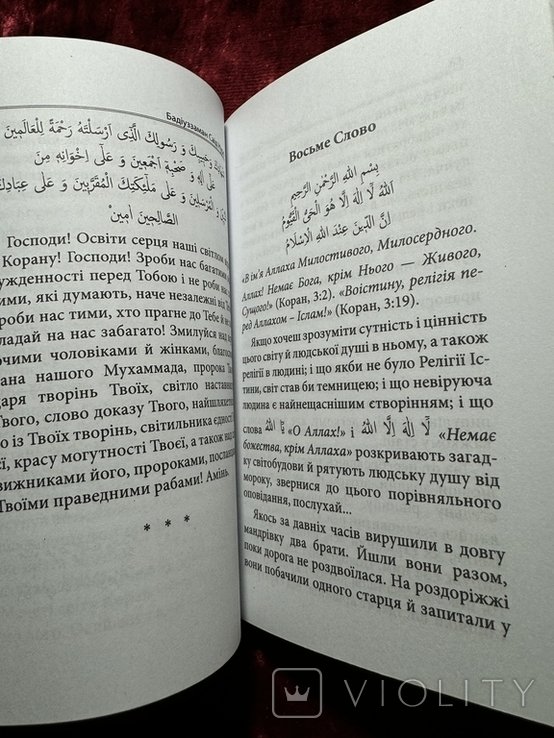 Бадіуззаман
وَ رَسُولِكَ الَّذِى اَرْسَلْتَهُ رَحْمَةً لِلْعَالَمِينَ
وَ صَحْبِهِ اَجْمَعِينَ وَ عَلٰى اِخْوَانِهِ مِنَ
وَ عَلٰى مَلٰئِكَتِكَ الْمُقَرَّبِينَ وَ عَلٰى عِبَادِكَ
الصَّالِحِينَ اٰمِينَ
Господи! Освіти серця наші світлом
Корану! Господи! Зроби нас багатими
перед Тобою і не
тими, які думають, наче незалежні від
роби нас тими, хто прагне до Тебе й не
на нас забагато! Змилуйся над
чоловіками й жінками,
нашого Мухаммада, пророка
творінь Твоїх, світло
Твого, слово доказу Твого,
із Твоїх творінь, світильника
красу могутності Твоєї, а також над
його, пророками,
Твоїми праведними рабами! Амінь.
* * *
Восьме Слово
بِسْمِ اللهِ الرَّحْمٰنِ الرَّحِيمِ
اَللهُ لَا اِلٰهَ اِلَّا هُوَ الْحَىُّ الْقَيُّومُ
اِنَّ الدِّينَ عِنْدَ اللهِ الْاِسْلَامُ
«В ім’я Аллаха Милостивого, Милосердного.
Аллах! Немає Бога, крім Нього — Живого,
Сущого!» (Коран, 3:2). «Воістину, релігія пе-
ред Аллахом – Іслам!» (Коран, 3:19).
Якщо хочеш зрозуміти сутність і цінність
цього світу й людської душі в ньому, а також
релігії в людині; і що якби не було Релігії Іс-
тини, світ став би темницею; і що невіруюча
людина є найнещаснішим створінням; і що
слова يَا اَللهُ «О Аллах!» і لَا اِلٰهَ اِلَّا اللهُ «Немає
божества, крім Аллаха» розкривають загад-
ку світобудови й рятують людську душу від
мороку, звернися до цього порівняльного
оповідання, послухай...
Якось за давніх часів вирушили в довгу
мандрівку два брати. Йшли вони разом,
поки дорога не роздвоїлася. На роздоріжжі
вони побачили одного старця й запитали у
VIOLITY